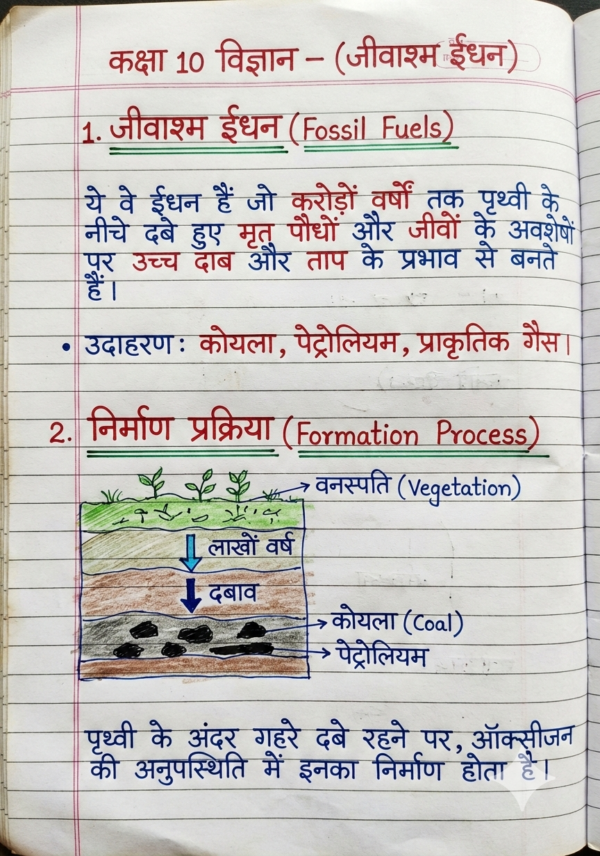 कक्षा 10 विज्ञान – (जीवाश्म ईंधन)
1. जीवाश्म ईंधन (Fossil Fuels)
ये वे ईंधन हैं जो करोड़ों वर्षों तक पृथ्वी के
नीचे दबे हुए मृत पौधों और जीवों के अवशेषों
पर उच्च दाब और ताप के प्रभाव से बनते
हैं।
• उदाहरण: कोयला, पेट्रोलियम, प्राकृतिक गैस।
2. निर्माण प्रक्रिया (Formation Process)
वनस्पति (Vegetation)
लाखों वर्ष
दबाव
कोयला (Coal)
पेट्रोलियम
पृथ्वी के अंदर गहरे दबे रहने पर, ऑक्सीजन
की अनुपस्थिति में इनका निर्माण होता है।